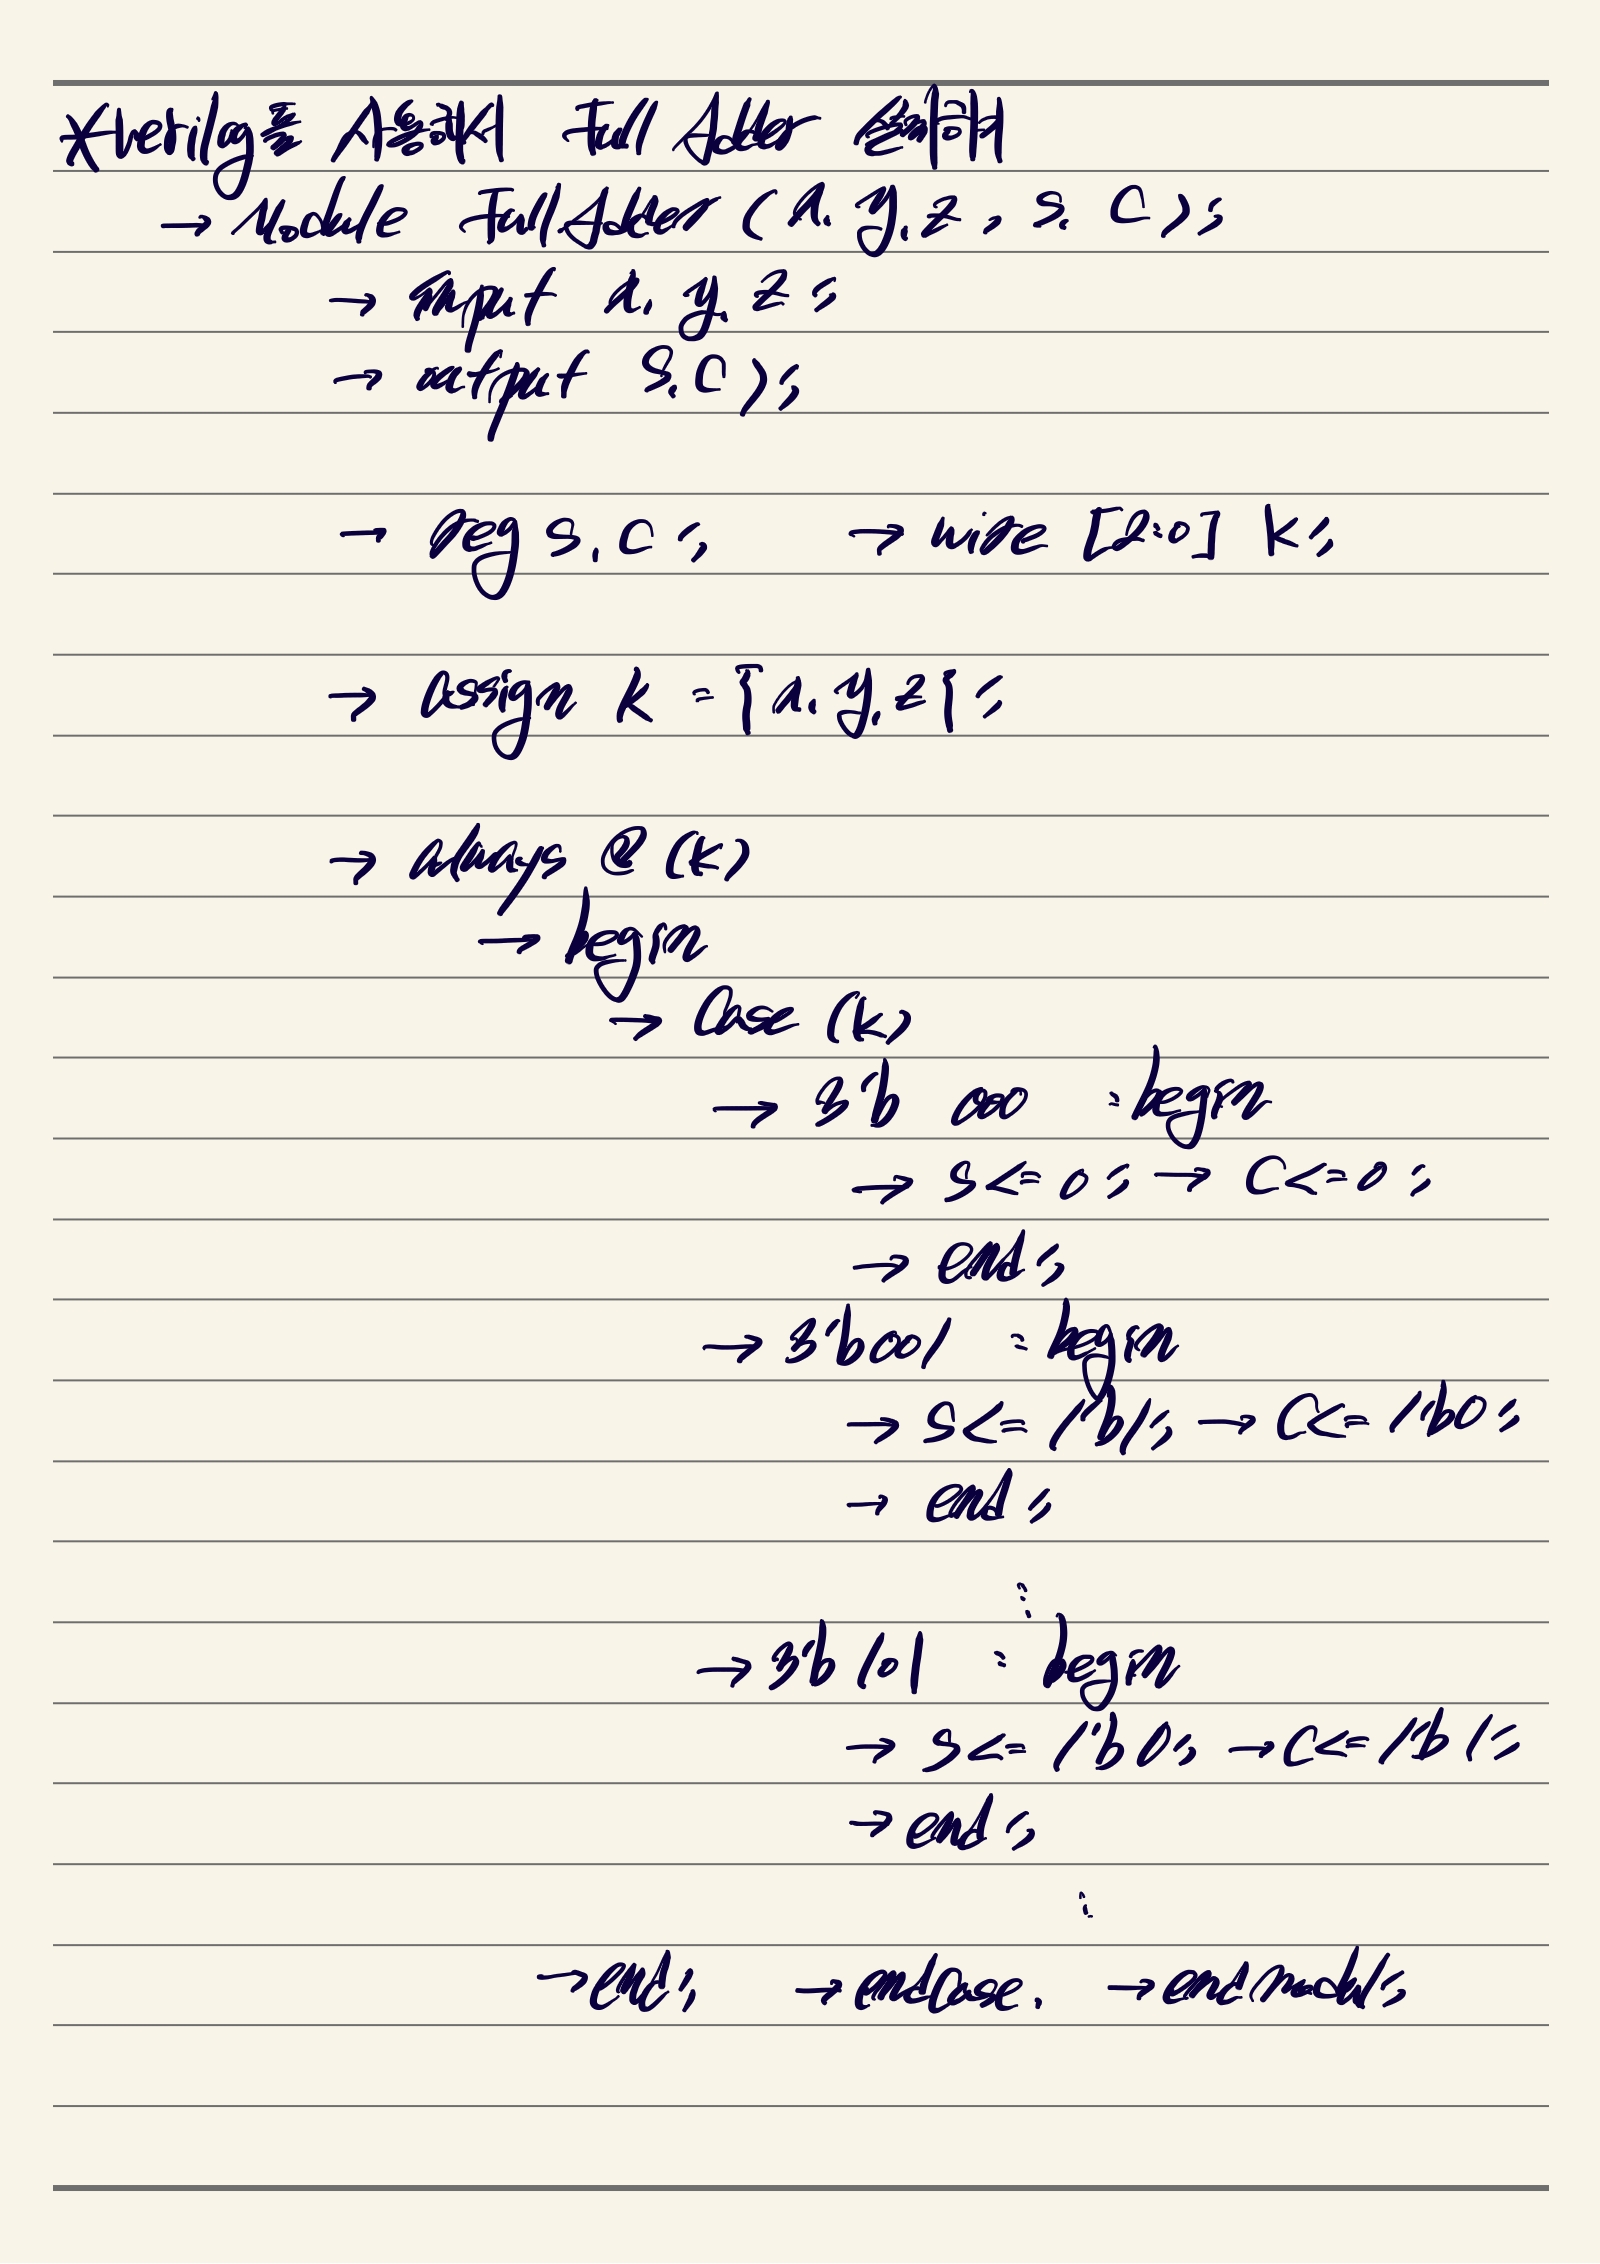 *verilog를 사용해서 Full Adder 설계하기
→ Module FullAdder (x, y, z, s, c);
→ input x, y, z;
→ output s, c);
→ reg s, c; → wire [2:0] k;
→ assign k = {x, y, z};
→ always @ (k)
→ begin
→ Case (k)
→ 3'b 000 : begin
→ s <= 0; → c <= 0;
→ end;
→ 3'b001 : begin
→ s <= 1'b1; → c <= 1'b0;
→ end;
⋮
→ 3'b 101 : begin
→ s <= 1'b0; → c <= 1'b1;
→ end;
⋮
→ end; → endcase. → end